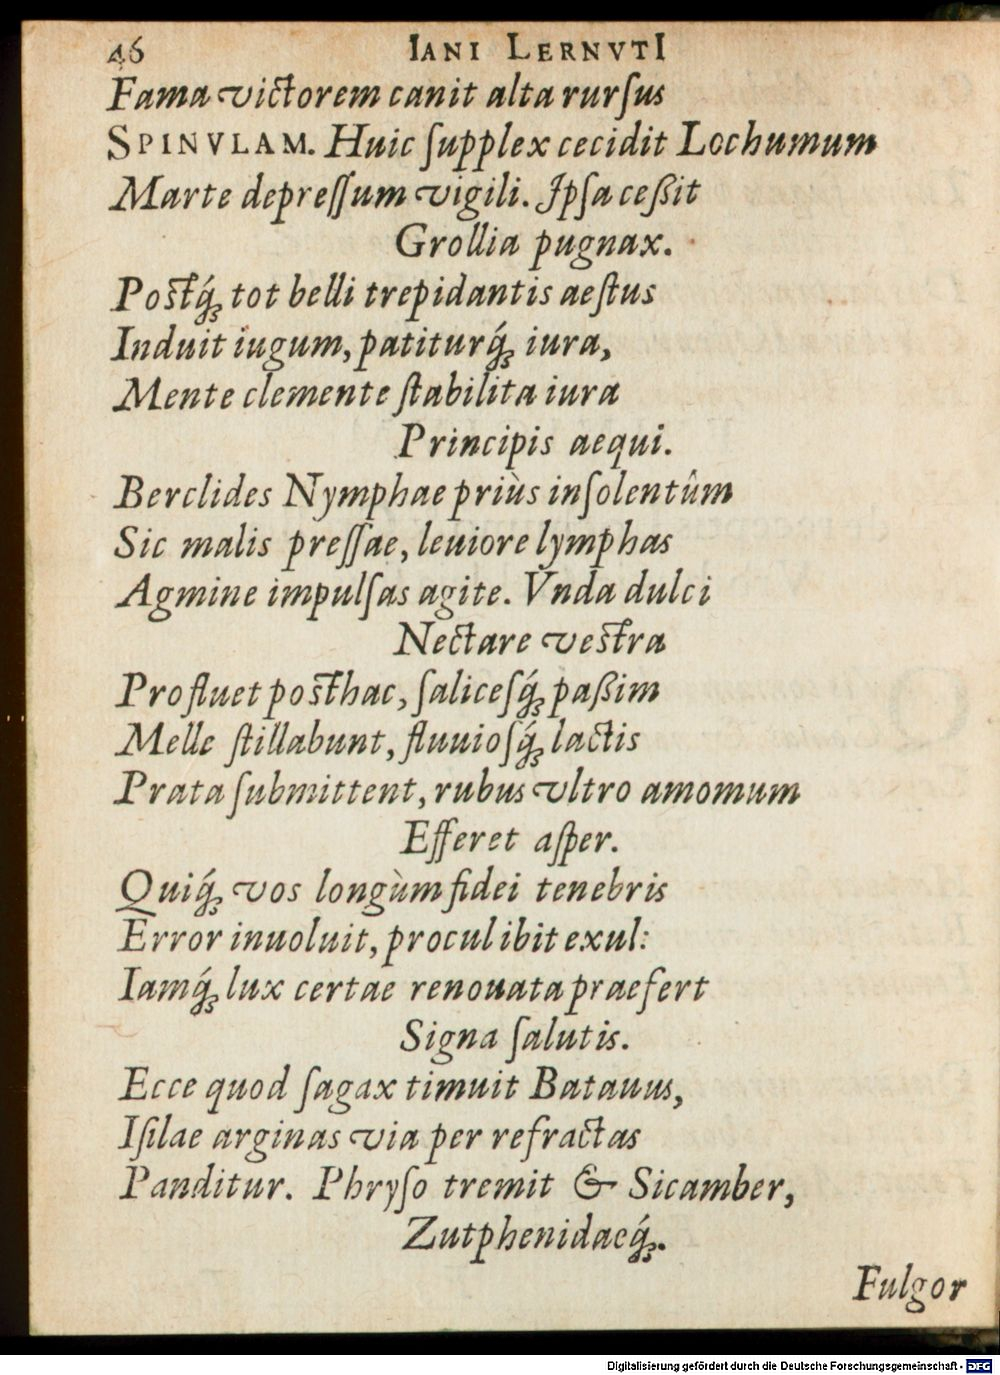 46 IANI LERNVTI
Fama victorem canit alta rurſus
SPINVLAM. Huic ſupplex cecidit Lochumum
Marte depreſſum vigili. Ipſa ceßit
Grollia pugnax.
Poſtq́; tot belli trepidantis aeſtus
Induit iugum, patiturq́; iura,
Mente clemente ſtabilita iura
Principis aequi.
Berclides Nymphae priùs inſolentûm
Sic malis preſſae, leuiore lymphas
Agmine impulſas agite. Vnda dulci
Nectare veſtra
Profluet poſthac, ſaliceſq́; paßim
Melle ſtillabunt, fluuioſq́; lactis
Prata ſubmittent, rubus vltro amomum
Efferet aſper.
Quiq́; vos longùm fidei tenebris
Error inuoluit, procul ibit exul:
Iamq́; lux certae renouata praefert
Signa ſalutis.
Ecce quod ſagax timuit Batauus,
Iſilae arginas via per refractas
Panditur. Phryſo tremit & Sicamber,
Zutphenidaeq́;.
Fulgor
Digitalisierung gefördert durch die Deutsche Forschungsgemeinschaft - DFG